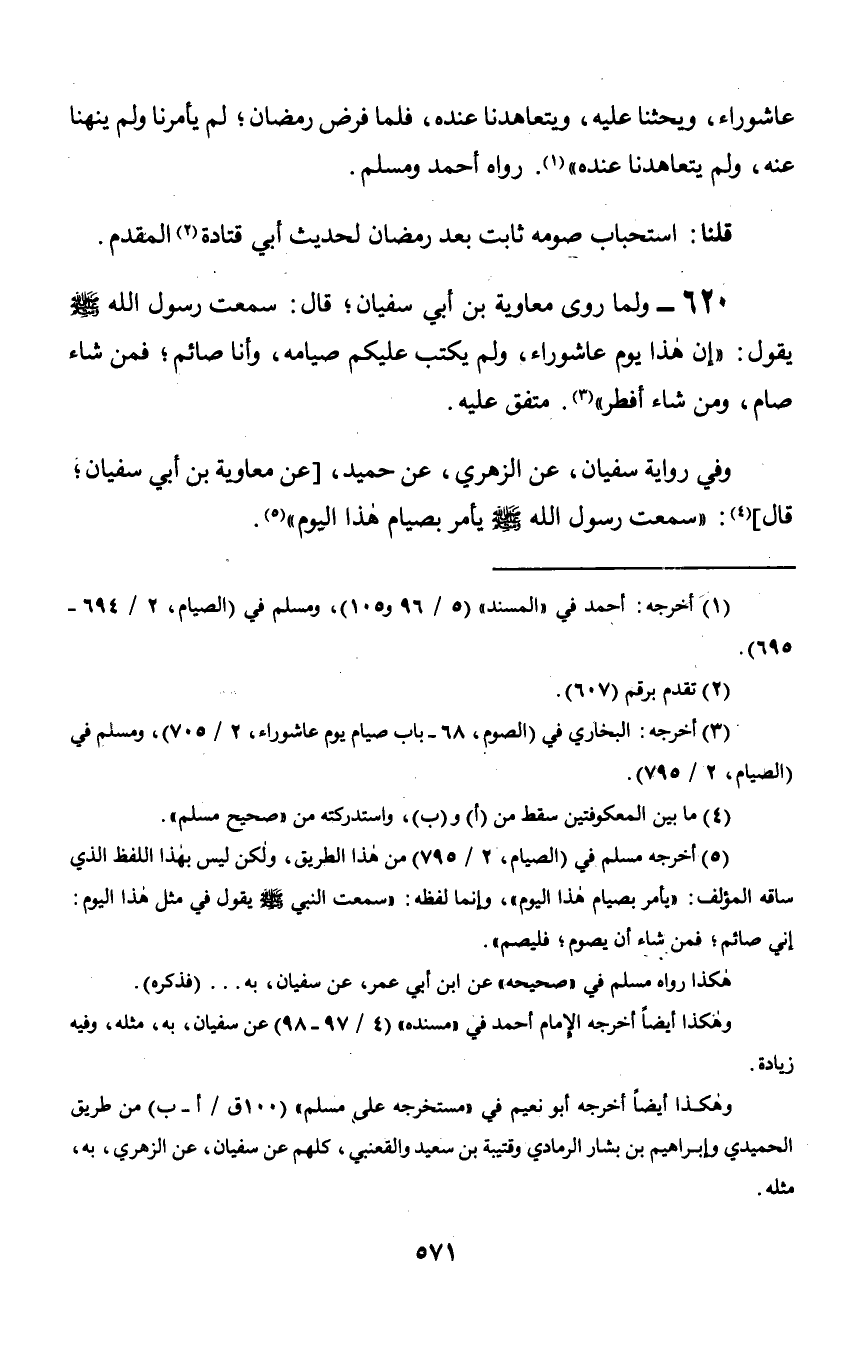 عاشوراء، ويحثنا عليه، ويتعاهدنا عنده، فلما فرض رمضان؛ لم يأمرنا ولم ينهنا
عنه، ولم يتعاهدنا عنده»(١). رواه أحمد ومسلم.
قلنا: استحباب صومه ثابت بعد رمضان لحديث أبي قتادة(٢) المقدم.
٦٢٠ ـ ولما روى معاوية بن أبي سفيان؛ قال: سمعت رسول الله ﷺ
يقول: «إن هٰذا يوم عاشوراء، ولم يكتب عليكم صيامه، وأنا صائم؛ فمن شاء
صام، ومن شاء أفطر»(٣). متفق عليه.
وفي رواية سفيان، عن الزهري، عن حميد، [عن معاوية بن أبي سفيان؛
قال](٤): «سمعت رسول الله ﷺ يأمر بصيام هٰذا اليوم»(٥).
(١) أخرجه: أحمد في «المسند» (٥ / ٩٦ و١٠٥)، ومسلم في (الصيام، ٢ / ٦٩٤ ـ
٦٩٥).
(٢) تقدم برقم (٦٠٧).
(٣) أخرجه: البخاري في (الصوم، ٦٨ ـ باب صيام يوم عاشوراء، ٢ / ٧٠٥)، ومسلم في
(الصيام، ٢ / ٧٩٥).
(٤) ما بين المعكوفتين سقط من (أ) و(ب)، واستدركته من «صحيح مسلم».
(٥) أخرجه مسلم في (الصيام، ٢ / ٧٩٥) من هٰذا الطريق، ولٰكن ليس بهٰذا اللفظ الذي
ساقه المؤلف: «يأمر بصيام هٰذا اليوم»، وإنما لفظه: «سمعت النبي ﷺ يقول في مثل هٰذا اليوم:
إني صائم؛ فمن شاء أن يصوم؛ فليصم».
هٰكذا رواه مسلم في «صحيحه» عن ابن أبي عمر، عن سفيان، به... (فذكره).
وهٰكذا أيضاً أخرجه الإمام أحمد في «مسنده» (٤ / ٩٧ ـ ٩٨) عن سفيان، به، مثله، وفيه
زيادة.
وهٰكذا أيضاً أخرجه أبو نعيم في «مستخرجه على مسلم» (١٠٠ق / أ ـ ب) من طريق
الحميدي وإبراهيم بن بشار الرمادي وقتيبة بن سعيد والقعنبي، كلهم عن سفيان، عن الزهري، به،
مثله.
٥٧١